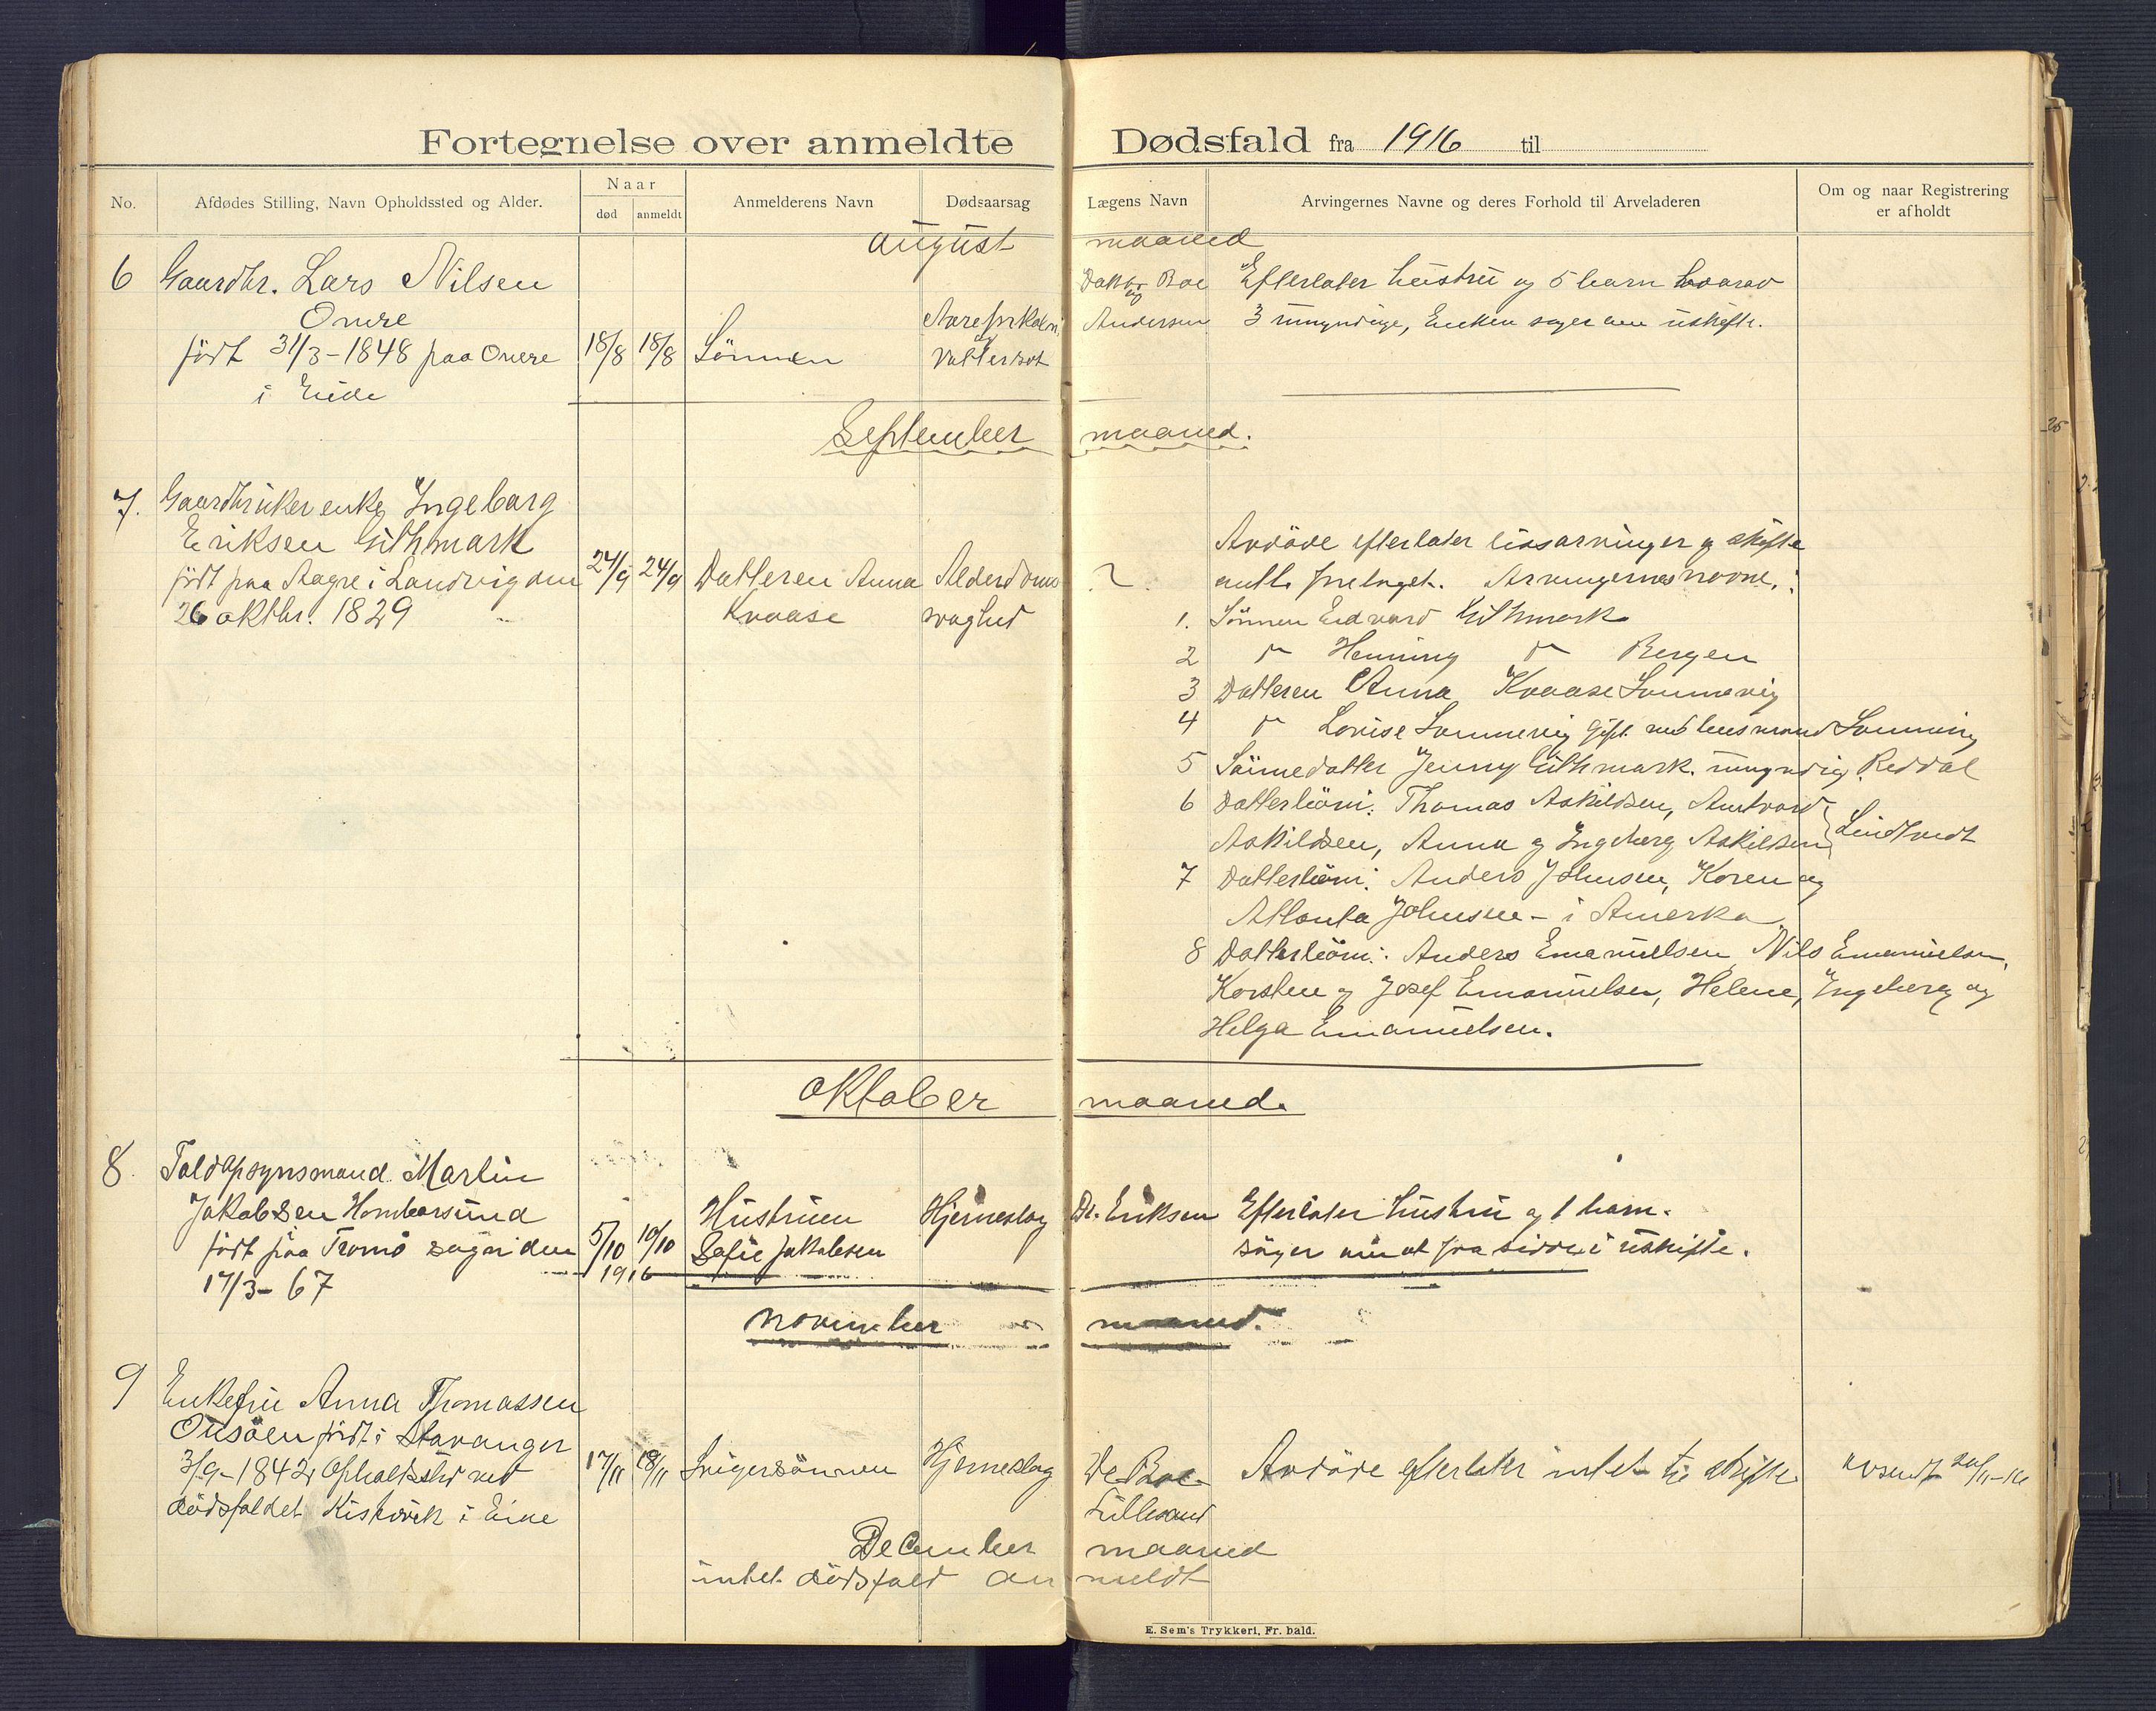 Fortegnelse over anmeldte Dødsfald fra 1916 til
No.
Afdødes Stilling, Navn Opholdssted og Alder.
Naar
død
anmeldt
Anmelderens Navn
Dødsaarsag
Lægens Navn
Arvingernes Navne og deres Forhold til Arveladeren
Om og naar Registrering
er afholdt
august maaned
6
Gaardbr. Lars Nilsen
Omre
födt 31/3-1848 paa Omre
i Eide
18/8
18/8
Sönnen
Vattersot
Doktor Boe
og
Andersen
Efterlater hustru og 5 barn hvorav
3 umyndige, Enken söger om uskifte.
September maaned.
7.
Gaardbruker enke Ingeborg
Eriksen Githmark
födt paa Aagre i Landvig den
26 oktbr. 1829
24/9
24/9
Datteren Anna
Kvaase
Alderdoms
svaghed
?
Avdöde efterlater livsarvinger og skifte
 foretaget. Arvingernes navne:
1. Sönnen Edvard Githmark
2 " Henning " Bergen
3 Datteren Anna Kvaase Sömmevig
4 " Lovise Sömmevig gift med husmand Sömmevig
5 Sönnedatter Jenny Githmark. umyndig Reddal
6 Datterbörn: Thomas Askildsen, Amtvard
Askildsen, Anna og Ingeborg Askildsen Lindtvedt
7 Datterbörn: Anders Johnsen, Koren og
Atlanta Johnsen - i Amerka
8 Datterbörn: Anders Emanuelsen Nils Emanuelsen,
Karsten og Josef Emanuelsen, Helene, Ingeborg og
Helga Emanuelsen.
oktober maaned.
8.
Toldopsynsmand Martin
Jakobsen Homborsund
födt paa Tromö sogn den
17/3-67
5/10
10/10
1916
Hustruen
Sofie Jakobsen
Hjerneslag
Dr. Eriksen
Efterlater hustru og 1 barn.
söger om at faa sidde i uskifte.
november maaned.
9
Enkefru Anna Thomassen
Ousöen födt i Stavanger
3/9-1842, Opholdssted ved
dödsfaldet Kistevik i Eide
17/11
18/11
Svigersönnen
Hjerneslag
Dr Boe
Lillesand
Avdöde efterlater intet til skifte
20/11-16
December maaned
intet dödsfald anmeldt
E. Sem's Trykkeri, Fr.hald.